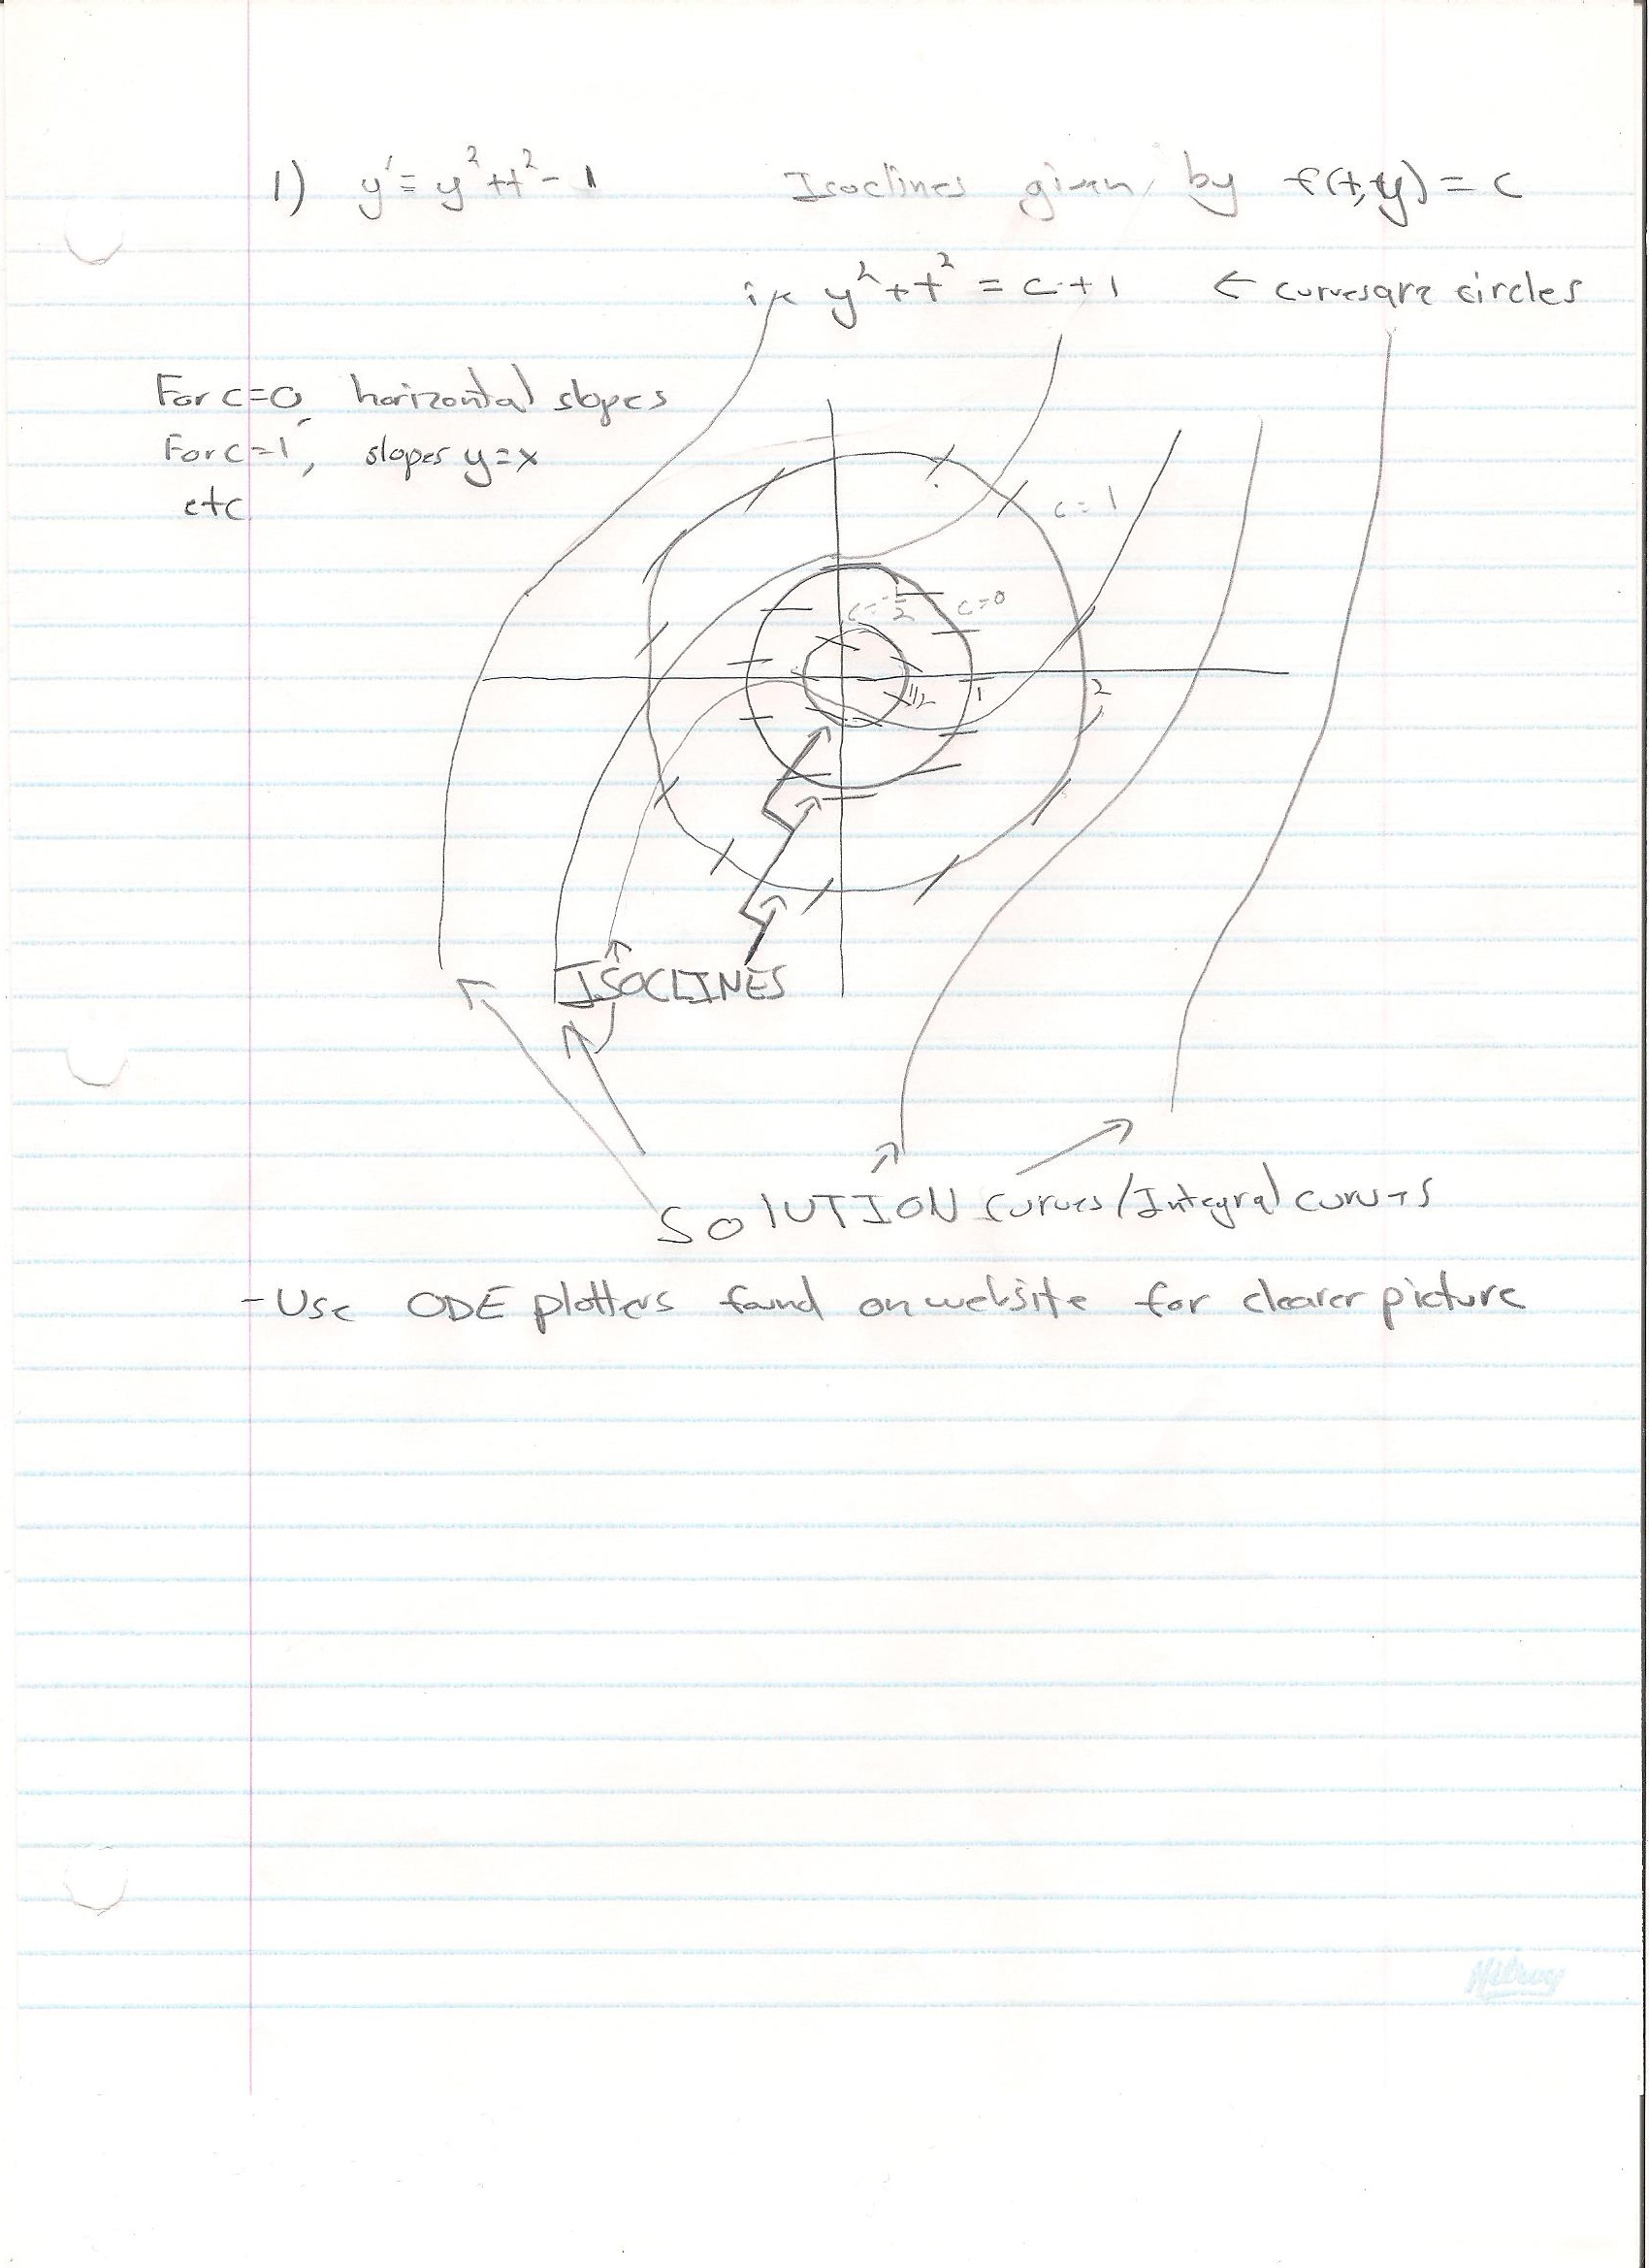 1) y' = y² + t² - 1 Isoclines given by f(t,y) = c
ie y² + t² = c + 1 ← curves are circles
For c=0, horizontal slopes
For c=1, slopes y=x
etc
c=1
c=-1/2 c=0
1/2 1 2
ISOCLINES
SOLUTION curves/Integral curves
- Use ODE plotters found on website for clearer picture
Hilroy